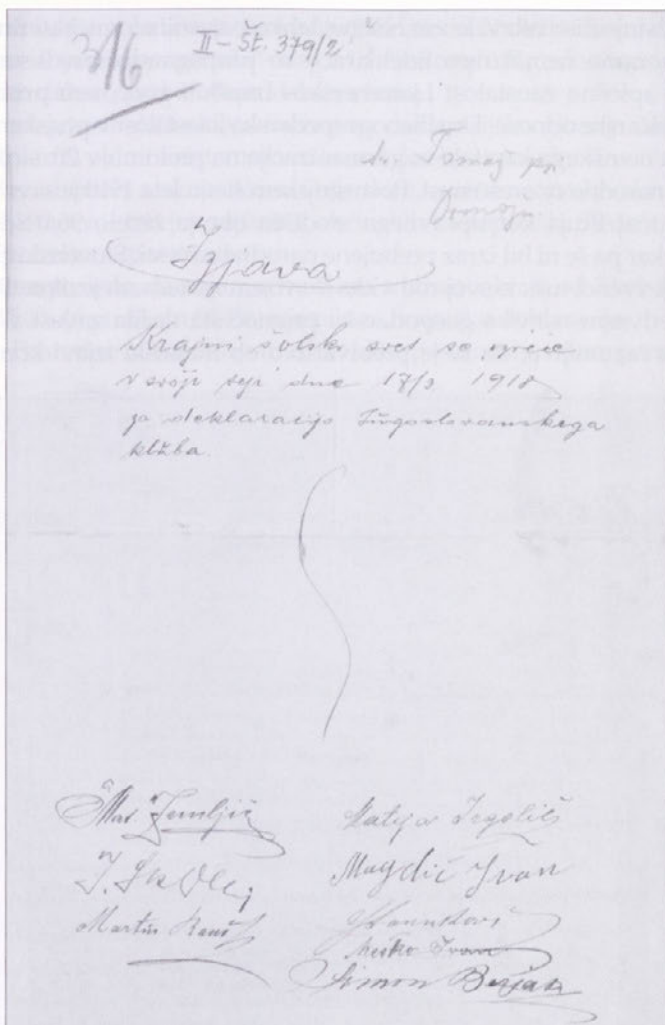 II - Št. 379/2
Sv. Tomaž pri
Ormožu
Izjava
Krajni šolski svet se izreče
v svoji seji dne 17/3 1918
za deklaracijo Jugoslovanskega
kluba.
Mat. Zemljič
Matija Zegolič
Magdič Ivan
Martin
Ivan
Simon